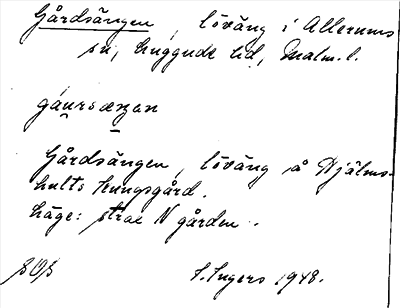 Gårdsängen, löväng i Allerums
sn, Luggude hd, Malm. l.
gáu̯rsæŋan
Gårdsängen, löväng å Hjälms-
hults kungsgård.
Läge: strax N gården.
I. Ingers 1948.